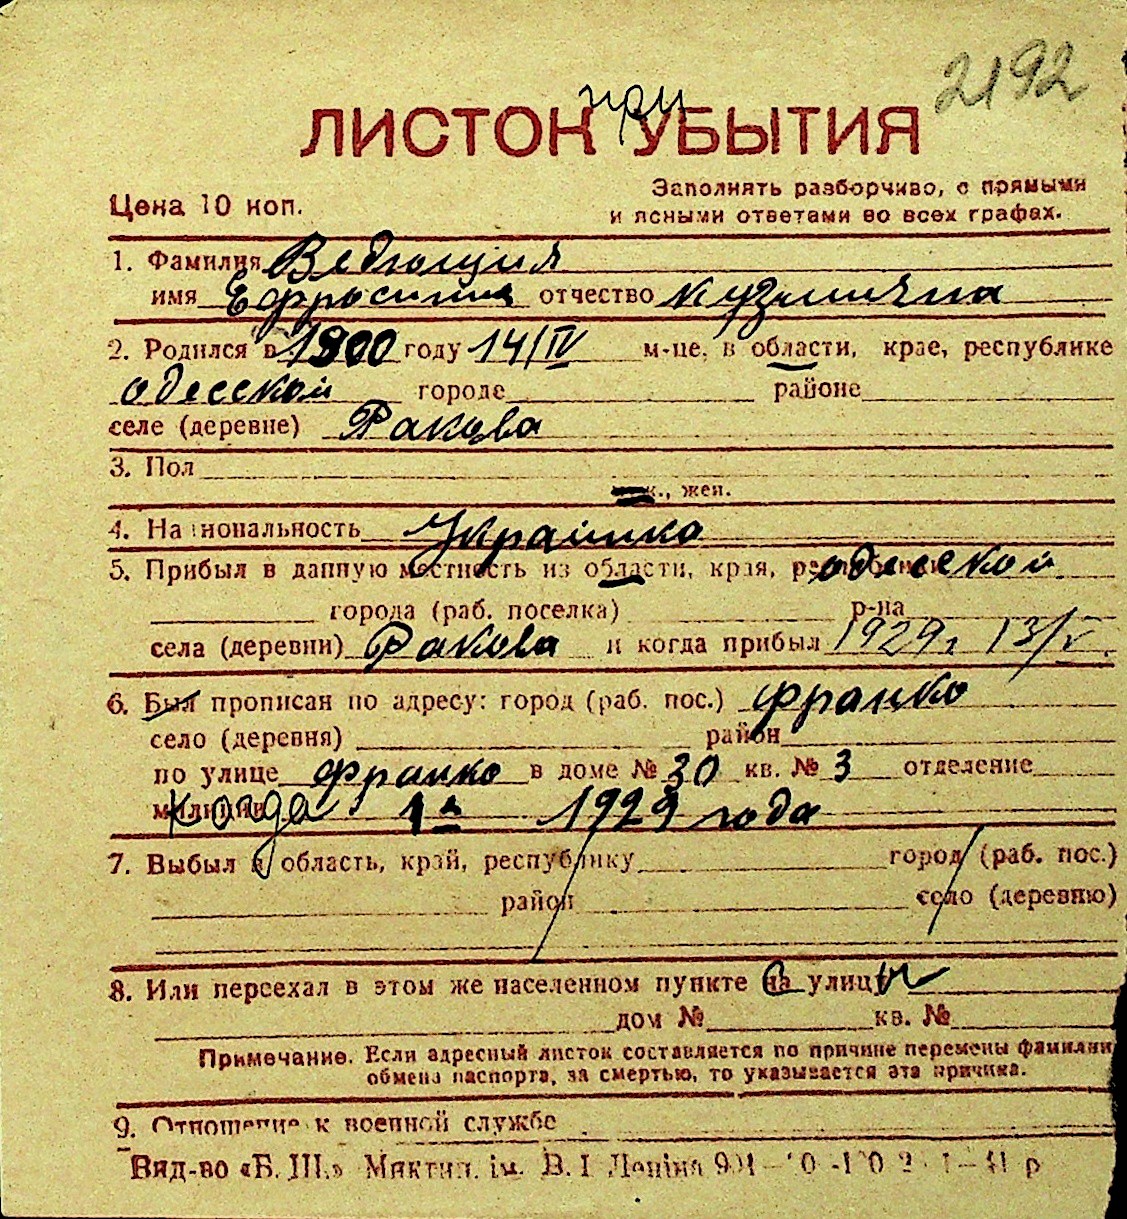 2192
при
ЛИСТОК УБЫТИЯ
Цена 10 коп.
Заполнять разборчиво, с прямыми
и ясными ответами во всех графах.
1. Фамилия
имя Ефросиния отчество Кузминична
2. Родился в 1900 году 14/IV м-це, в области, крае, республике
одесской городе районе
селе (деревне) Ракова
3. Пол
муж., жен.
4. Национальность Украинка
5. Прибыл в данную местность из области, края, республики одесской
города (раб. поселка) р-на
села (деревни) Ракова и когда прибыл 1929г 13/V.
6. Был прописан по адресу: город (раб. пос.) франко
село (деревня) район
по улице франко в доме № 30 кв. № 3 отделение
милиции когда 1929 года
7. Выбыл в область, край, республику город (раб. пос.)
район село (деревню)
8. Или переехал в этом же населенном пункте на улицу
дом № кв. №
Примечание. Если адресный листок составляется по причине перемены фамилии
обмена паспорта, за смертью, то указывается эта причина.
9. Отношение к военной службе
Вид-во «Б. Ш.» Миктип. ім. В. І Леніна